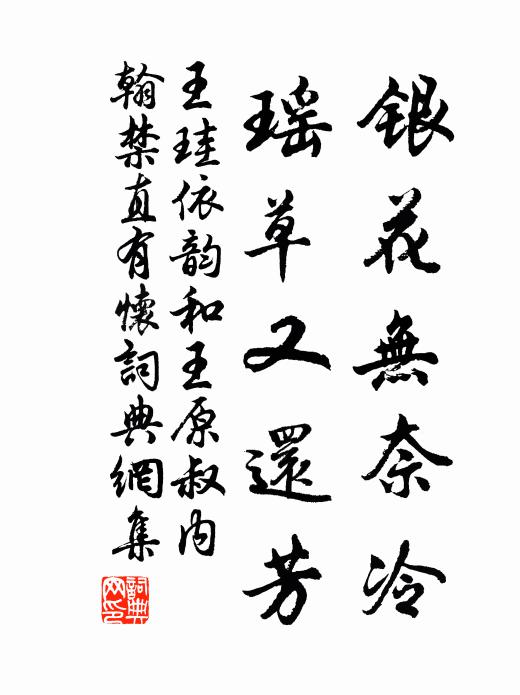 銀花無奈冷
瑶草又還芳
王珪依韵和王原叔内
翰禁直有懷詞典網集
詞典网印